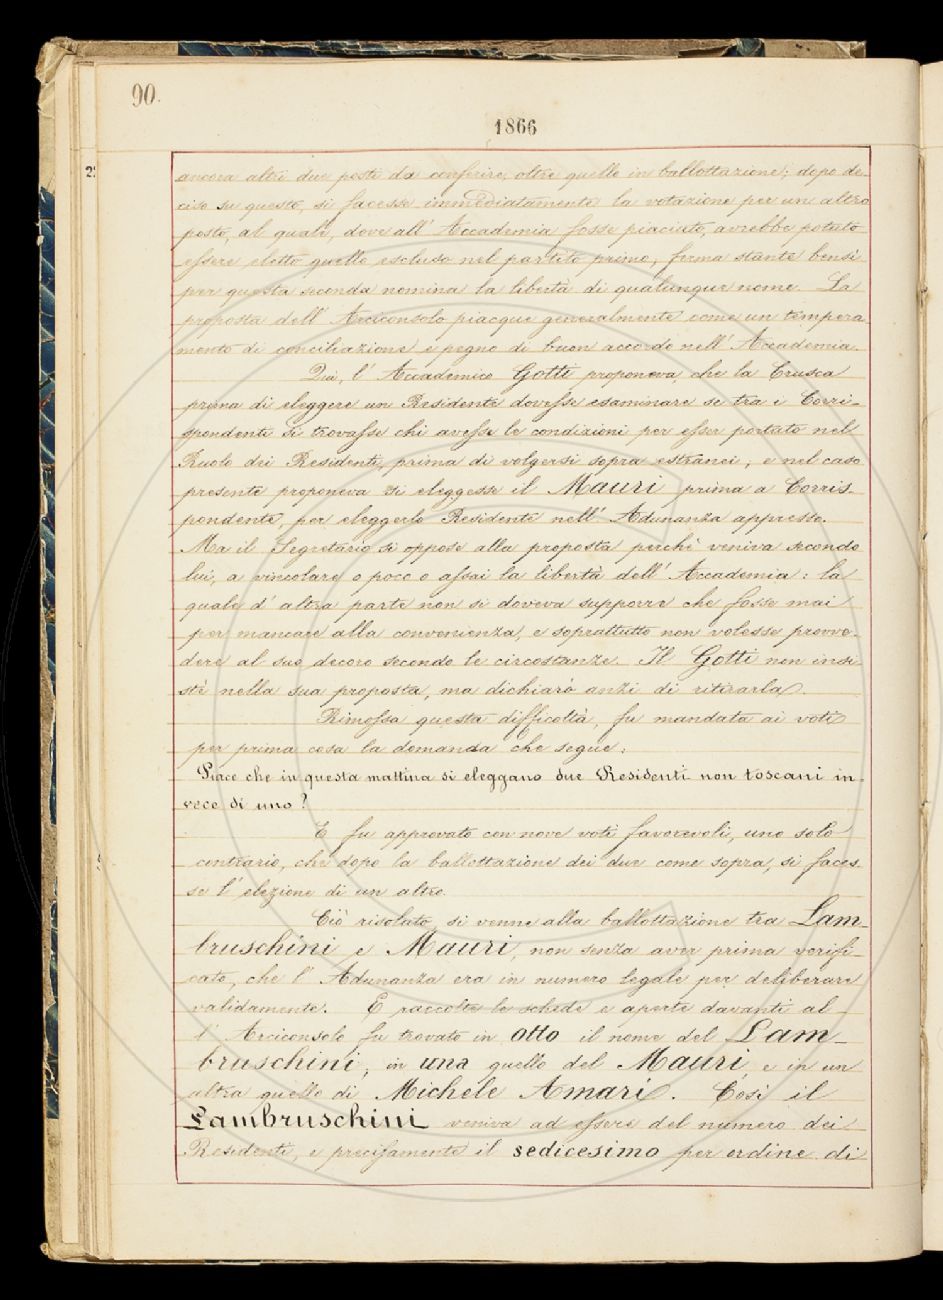 90.
1866
ancora altri due posti da conferire, oltre quello in ballottazione; dopo de-
ciso su questo, si facesse immediatamente la votazione per un altro
posto, al quale, dove all' Accademia fosse piaciuto, avrebbe potuto
essere eletto quello escluso nel partito primo, ferma stante bensì
per questa seconda nomina la libertà di qualunque nome. La
proposta dell' Arciconsolo piacque generalmente come un tempera
mento di conciliazione e pegno di buon accordo nell' Accademia.
Qui, l' Accademico Gotti proponeva che la Crusca
prima di eleggere un Residente dovesse esaminare se tra i Corri-
spondenti si trovasse chi avesse le condizioni per esser portato nel
Ruolo dei Residenti, prima di volgersi sopra estranei, e nel caso
presente proponeva si eleggesse il Mauri prima a Corris-
pondente, per eleggerlo Residente nell' Adunanza appresso.
Ma il Segretario si oppose alla proposta perchè veniva secondo
lui, a vincolare o poco o assai la libertà dell' Accademia: la
quale d' altra parte non si doveva supporre che fosse mai
per mancare alla convenienza, e soprattutto non volesse provve-
dere al suo decoro secondo le circostanze. Il Gotti non insi
stè nella sua proposta, ma dichiarò anzi di ritirarla.
Rimossa questa difficoltà, fu mandata ai voti
per prima cosa la domanda che segue:
Piace che in questa mattina si eleggano due Residenti non toscani in-
vece di uno?
E fu approvato con nove voti favorevoli, uno solo
contrario, che dopo la ballottazione dei due come sopra, si faces-
se l' elezione di un altro.
Ciò risoluto, si venne alla ballottazione tra Lam-
bruschini e Mauri, non senza aver prima verifi-
cato, che l' Adunanza era in numero legale per deliberare
validamente. E raccolte le schede e aperte davanti al-
l' Arciconsolo fu trovato in otto il nome del Lam-
bruschini, in una quello del Mauri, e in un
altra quello di Michele Amari. Così il
Lambruschini veniva ad essere del numero dei
Residenti, e precisamente il sedicesimo per ordine di